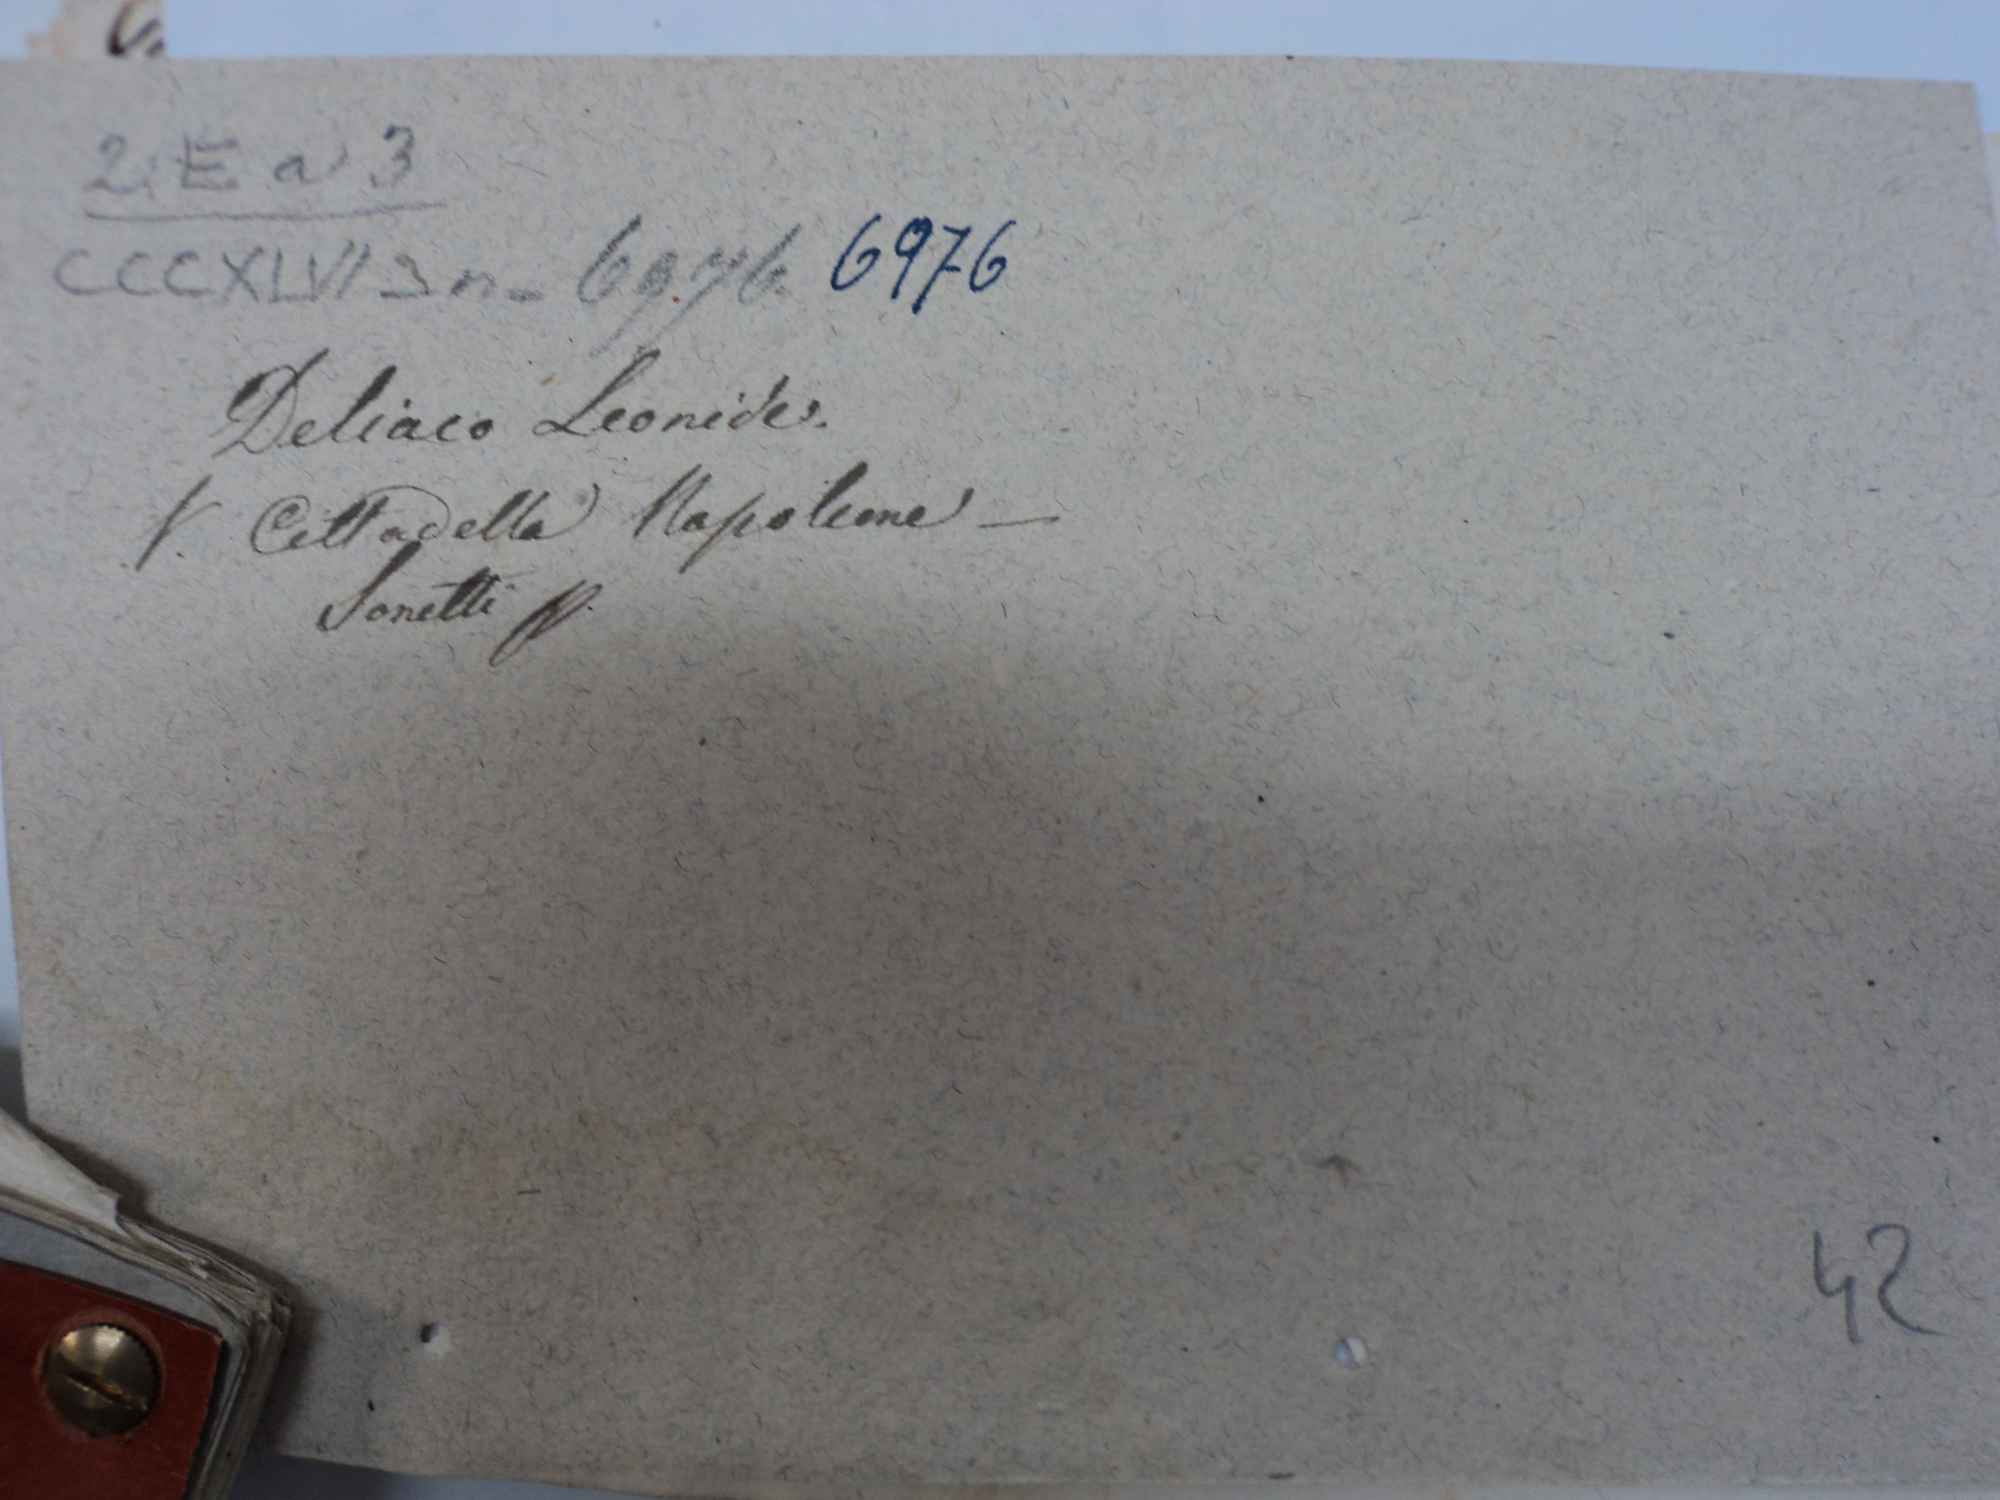 2 E a 3
CCCXLVI 3 n- 6976. 6976
Deliaco Leonide.
V. Cittadella Napoleone —
Sonetti
42